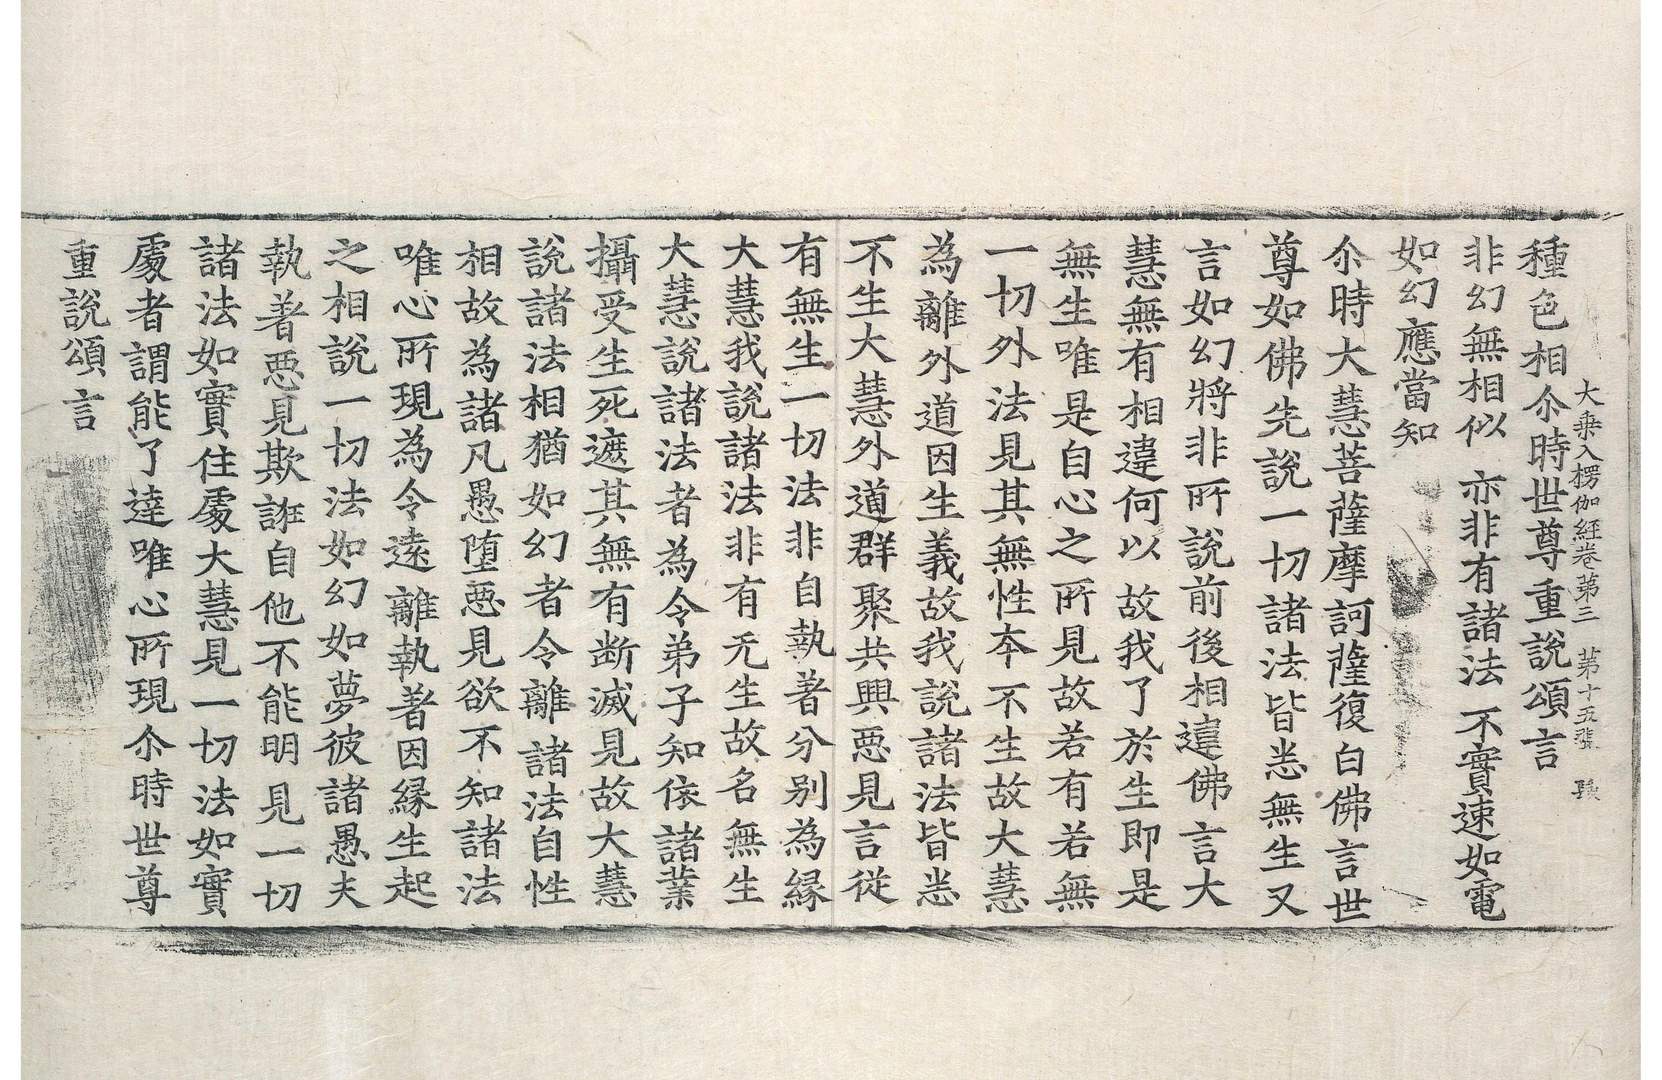 種色相尒時世尊重說頌言
大乗入楞伽經卷第三 第十五張
非幻無相似 亦非有諸法 不實速如電
如幻應當知
尒時大慧菩薩摩訶薩復白佛言世
尊如佛先說一切諸法皆悉無生又
言如幻將非所說前後相違佛言大
慧無有相違何以故我了於生即是
無生唯是自心之所見故若有若無
一切外法見其無性本不生故大慧
為離外道因生義故我說諸法皆悉
不生大慧外道群聚共興惡見言從
有無生一切法非自執著分别為緣
大慧我說諸法非有无生故名無生
大慧說諸法者為令弟子知依諸業
攝受生死遮其無有断滅見故大慧
說諸法相猶如幻者令離諸法自性
相故為諸凡愚墮惡見欲不知諸法
唯心所現為令遠離執著因緣生起
之相說一切法如幻如夢彼諸愚夫
執著惡見欺誑自他不能明見一切
諸法如實住處大慧見一切法如實
處者謂能了達唯心所現尒時世尊
重說頌言